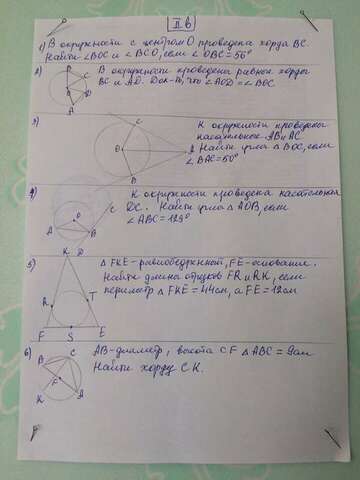 II в
1) В окружности с центром О проведена хорда ВС.
Найти ∠BOC и ∠BCO, если ∠OBC = 50°
2) В окружности проведены равные хорды
ВС и AD. Док-ть, что ∠AOD = ∠BOC.
3) К окружности проведены
касательные АВ и АС
Найти углы △ BOC, если
∠BAC = 50°
4) К окружности проведена касательная
DC. Найти углы △ AOB, если
∠ABC = 129°
5) △ FKE – равнобедренный, FE – основание.
Найти длины отрезков FR и RK, если
периметр △ FKE = 44см, а FE = 12см
6) АВ – диаметр, высота CF △ ABC = 9см
Найти хорду СК.